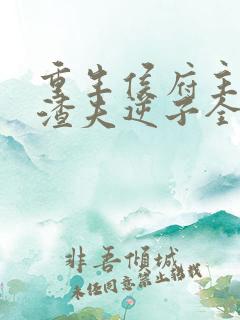 重生侯府主
渣夫逆子全
非吾倾城
未经同意禁止转载